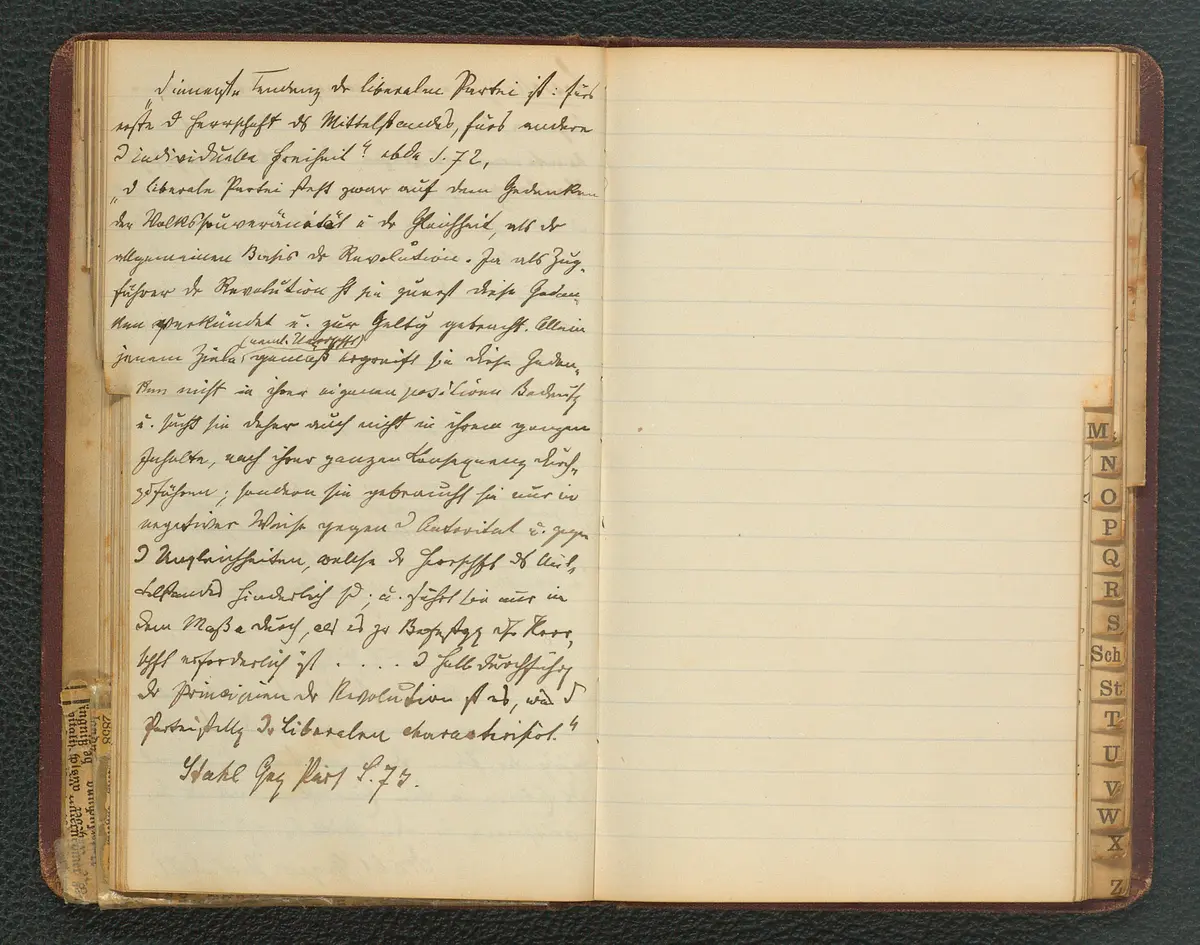 „D innerste Tendenz dr liberalen Partei ist: fürs
erste d Herrschaft ds Mittelstandes, fürs andere
d individuelle Freiheit“ ebda S. 72,
„d liberale Partei steht zwar auf dem Gedanken
der Volkssouveränität u dr Gleichheit, als dr
allgemeinen Basis dr Revolution. Ja als Zug-
führer dr Revolution ht sie zuerst diese Gedan-
ken verkündet u. zur Geltg gebracht. Allein
jenem Ziele gemäß ergreift sie diese Gedan-
ken nicht in ihrer eigenen positiven Bedeutg
u. sucht sie daher auch nicht in ihrem ganzen
Inhalte, nach ihrer ganzen Consequenz durch-
zuführen; sondern sie gebraucht sie nur in
negativer Weise gegen d Autorität u. gegen
d Ungleichheiten, welche dr Herrschft ds Mit-
telstandes hinderlich sd; u. führt sie nur in
dem Maße durch, als es zr Befestgg dsr Herr-
schft erforderlich ist . . . . d halb durchführg
dr Principien dr Revolution ist es, was d
Parteistellg dr Liberalen charactirisirt.“
Stahl Geg Part S. 73.
M
N
O
P
Q
R
S
Sch
St
T
U
V
W
X
Z